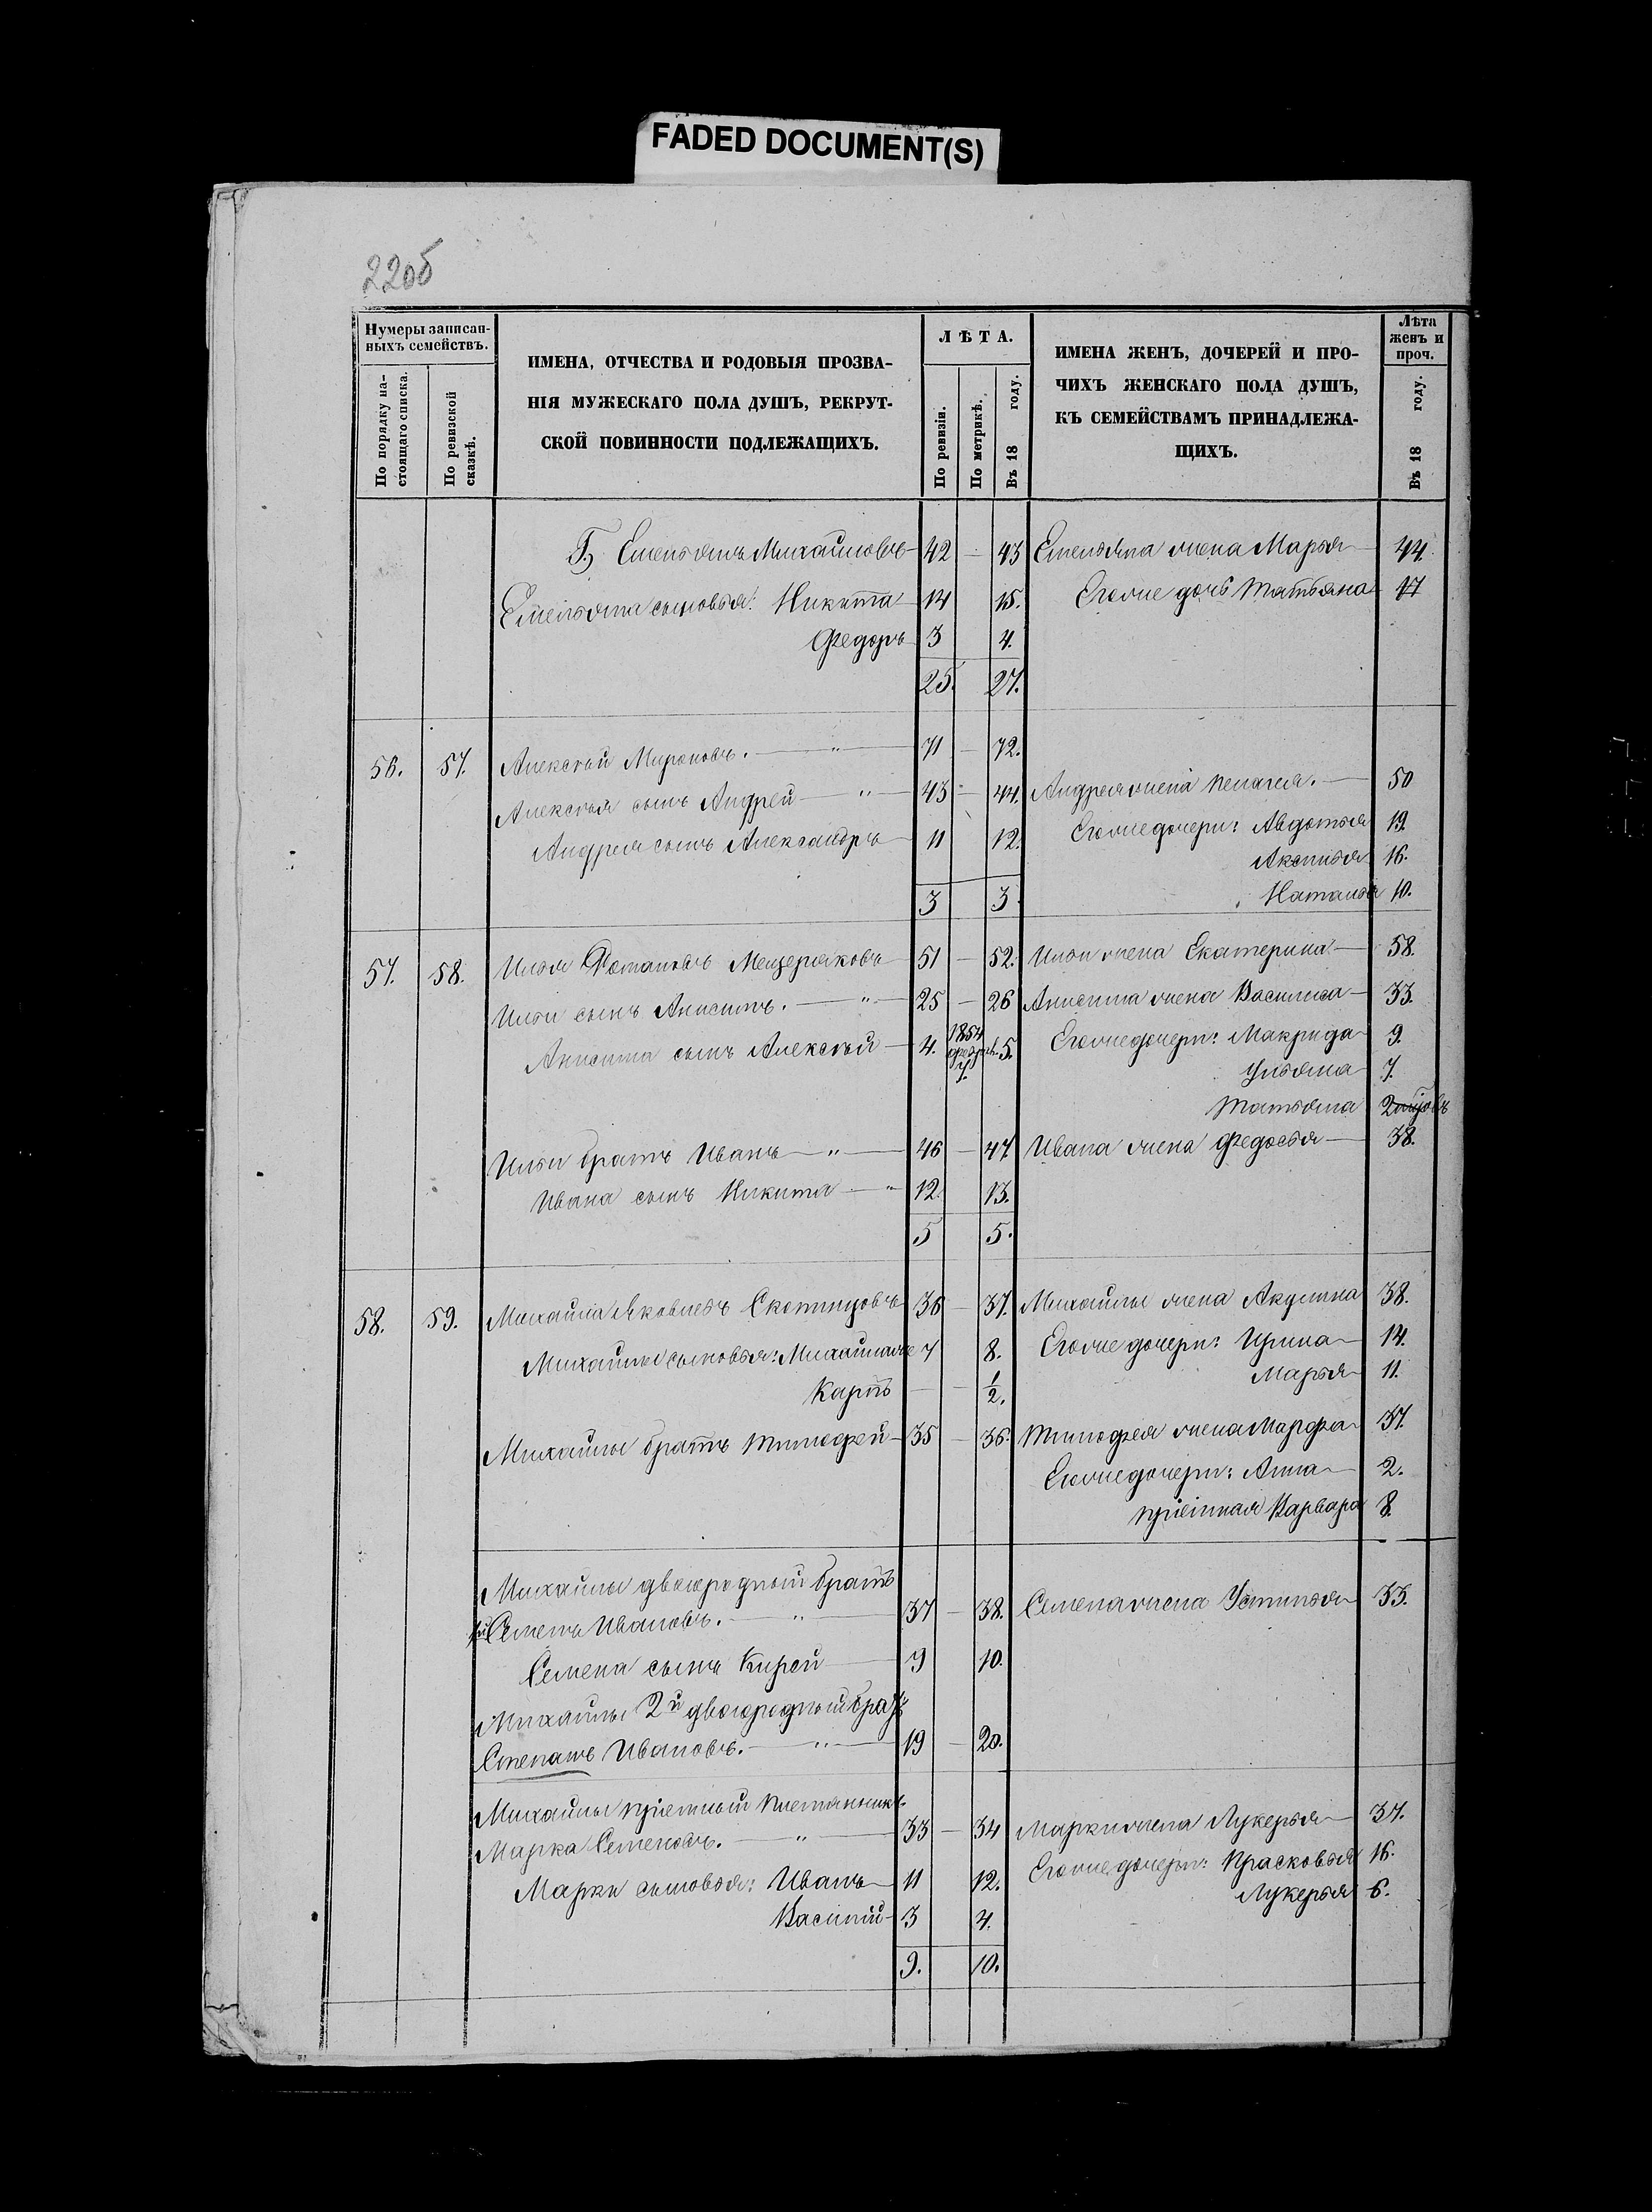 FADED DOCUMENT(S)
220б
Нумеры записан-
ныхъ семействъ.
По порядку на-
стоящаго списка.
По ревизской
сказкѣ.
ИМЕНА, ОТЧЕСТВА И РОДОВЫЯ ПРОЗВА-
НІЯ МУЖЕСКАГО ПОЛА ДУШЪ, РЕКРУТ-
СКОЙ ПОВИННОСТИ ПОДЛЕЖАЩИХЪ.
ЛѢТА.
По ревизіи.
По метрикѣ.
Въ 18 году.
ИМЕНА ЖЕНЪ, ДОЧЕРЕЙ И ПРО-
ЧИХЪ ЖЕНСКАГО ПОЛА ДУШЪ,
КЪ СЕМЕЙСТВАМЪ ПРИНАДЛЕЖА-
ЩИХЪ.
Лѣта
женъ и
проч.
Въ 18 году.
Емельянъ Михайловъ 42 — 43 Емельяна жена Марья 44.
Емельяна сыновья: Никита 14 15. Егоже дочь Татьяна 17
Федоръ 3 4.
25. 27.
56. 57. Алексѣй Мироновъ. — " — 71 — 72.
Алексѣя сынъ Андрей — " — 43 — 44. Андрея жена Пелагея. — 50
Андрея сынъ Александръ 11 12. Егоже дочери: Авдотья 19.
Аксинья 16.
3 3. Наталья 10.
57. 58. Илья Потаповъ Мещеряковъ 51 — 52. Ильи жена Екатерина — 58.
Ильи сынъ Анисимъ. — " — 25 — 26 Анисима жена Василиса — 33.
Анисима сынъ Алексѣй — 4. 1854 февр. 7. 5. Егоже дочери: Макрида 9.
Ульяна 7.
Татьяна 2
Ильи братъ Иванъ — " — 46 — 47 Ивана жена Федосья — 38.
Ивана сынъ Никита — " 12. 13.
5 5.
58. 59. Михайла Яковлевъ Скопинцовъ 36 — 37. Михайлы жена Акулина 38.
Михайлы сыновья: Михайла 7 8. Егоже дочери: Ирина 14.
Карпъ — — 1/2. Марья 11.
Михайлы братъ Тимофей 35 — 36. Тимофея жена Марфа 37.
Егоже дочери: Анна 2.
пріемная Варвара 8.
Михайлы двоюродный братъ
Семенъ Ивановъ. — " — 37 — 38. Семена жена Устинья 33.
Семена сынъ Кирей — 9 10.
Михайлы 2й двоюродный братъ
Степанъ Ивановъ. — " — 19 — 20.
Михайлы пріемный племянникъ
Марка Семеновъ. — " — 33 — 34 Марки жена Лукерья 37.
Марки сыновья: Иванъ 11 12. Егоже дочери: Прасковья 16.
Василій 3 4. Лукерья 6.
9. 10.